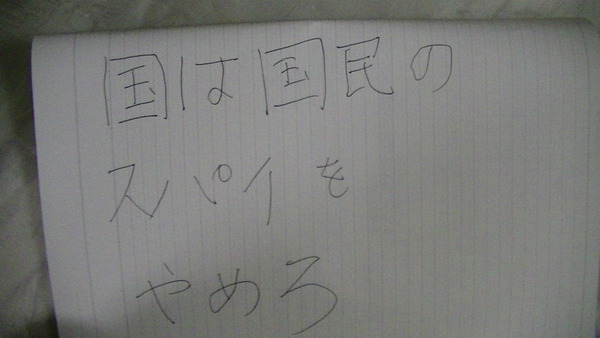 国は国民の
スパイを
やめろ